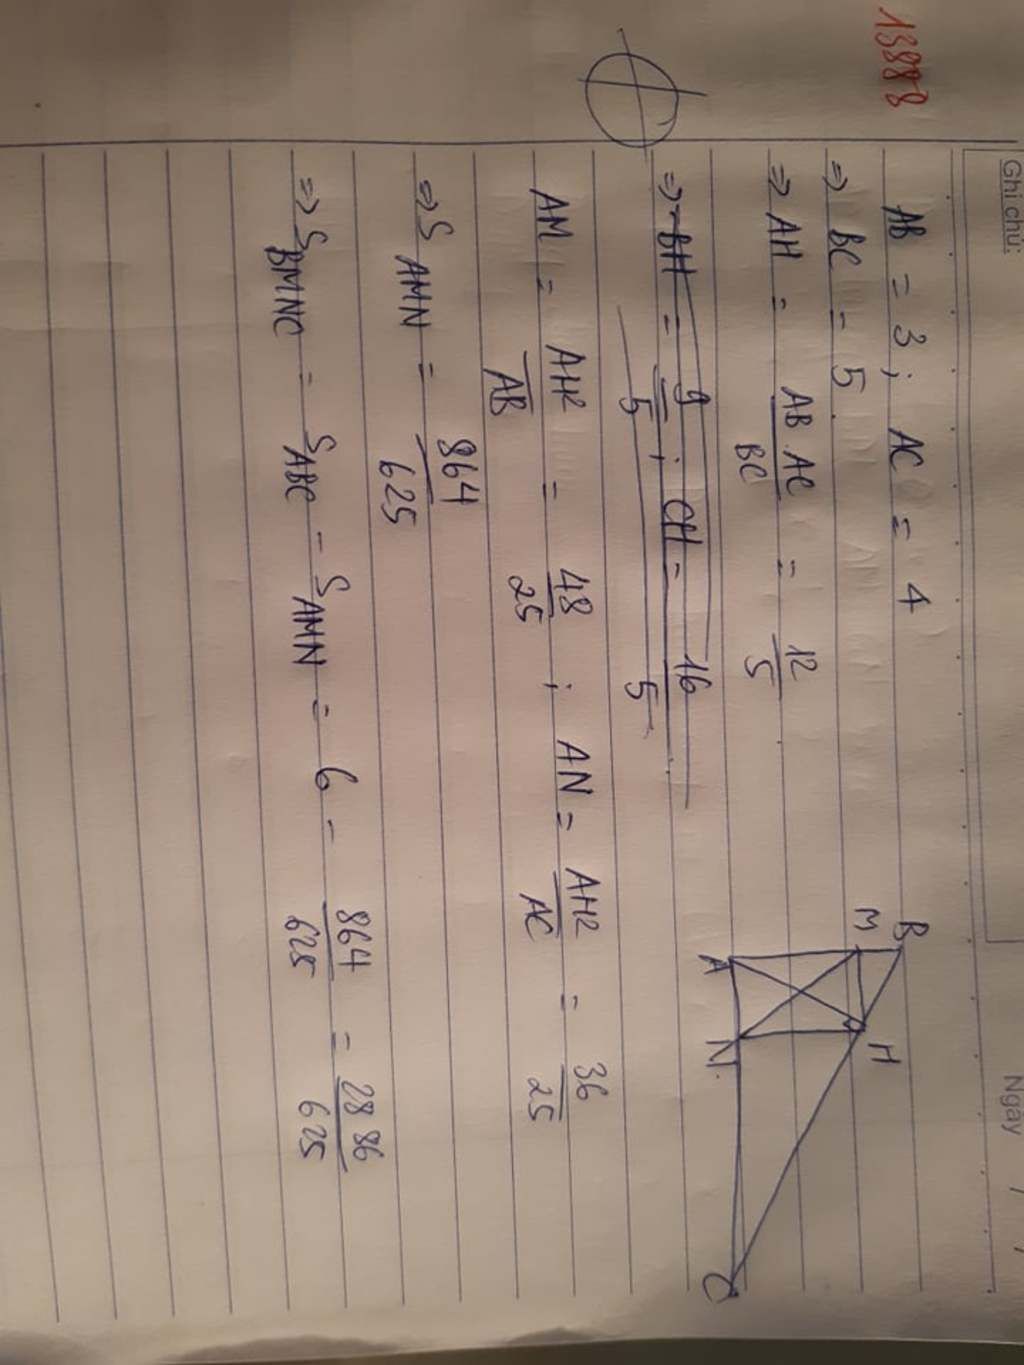 Ghi chú:
Ngày / /
13998
AB = 3 ; AC = 4
=> BC = 5.
=> AH = AB.AC / BC = 12/5
=> BH = 9/5 ; CH = 16/5
AM = AH2/AB = 48/25 ; AN = AH2/AC = 36/25
=> S AMN = 864/625
=> S BMNC = S ABC - S AMN = 6 - 864/625 = 2886/625
B
M
H
A
N
C